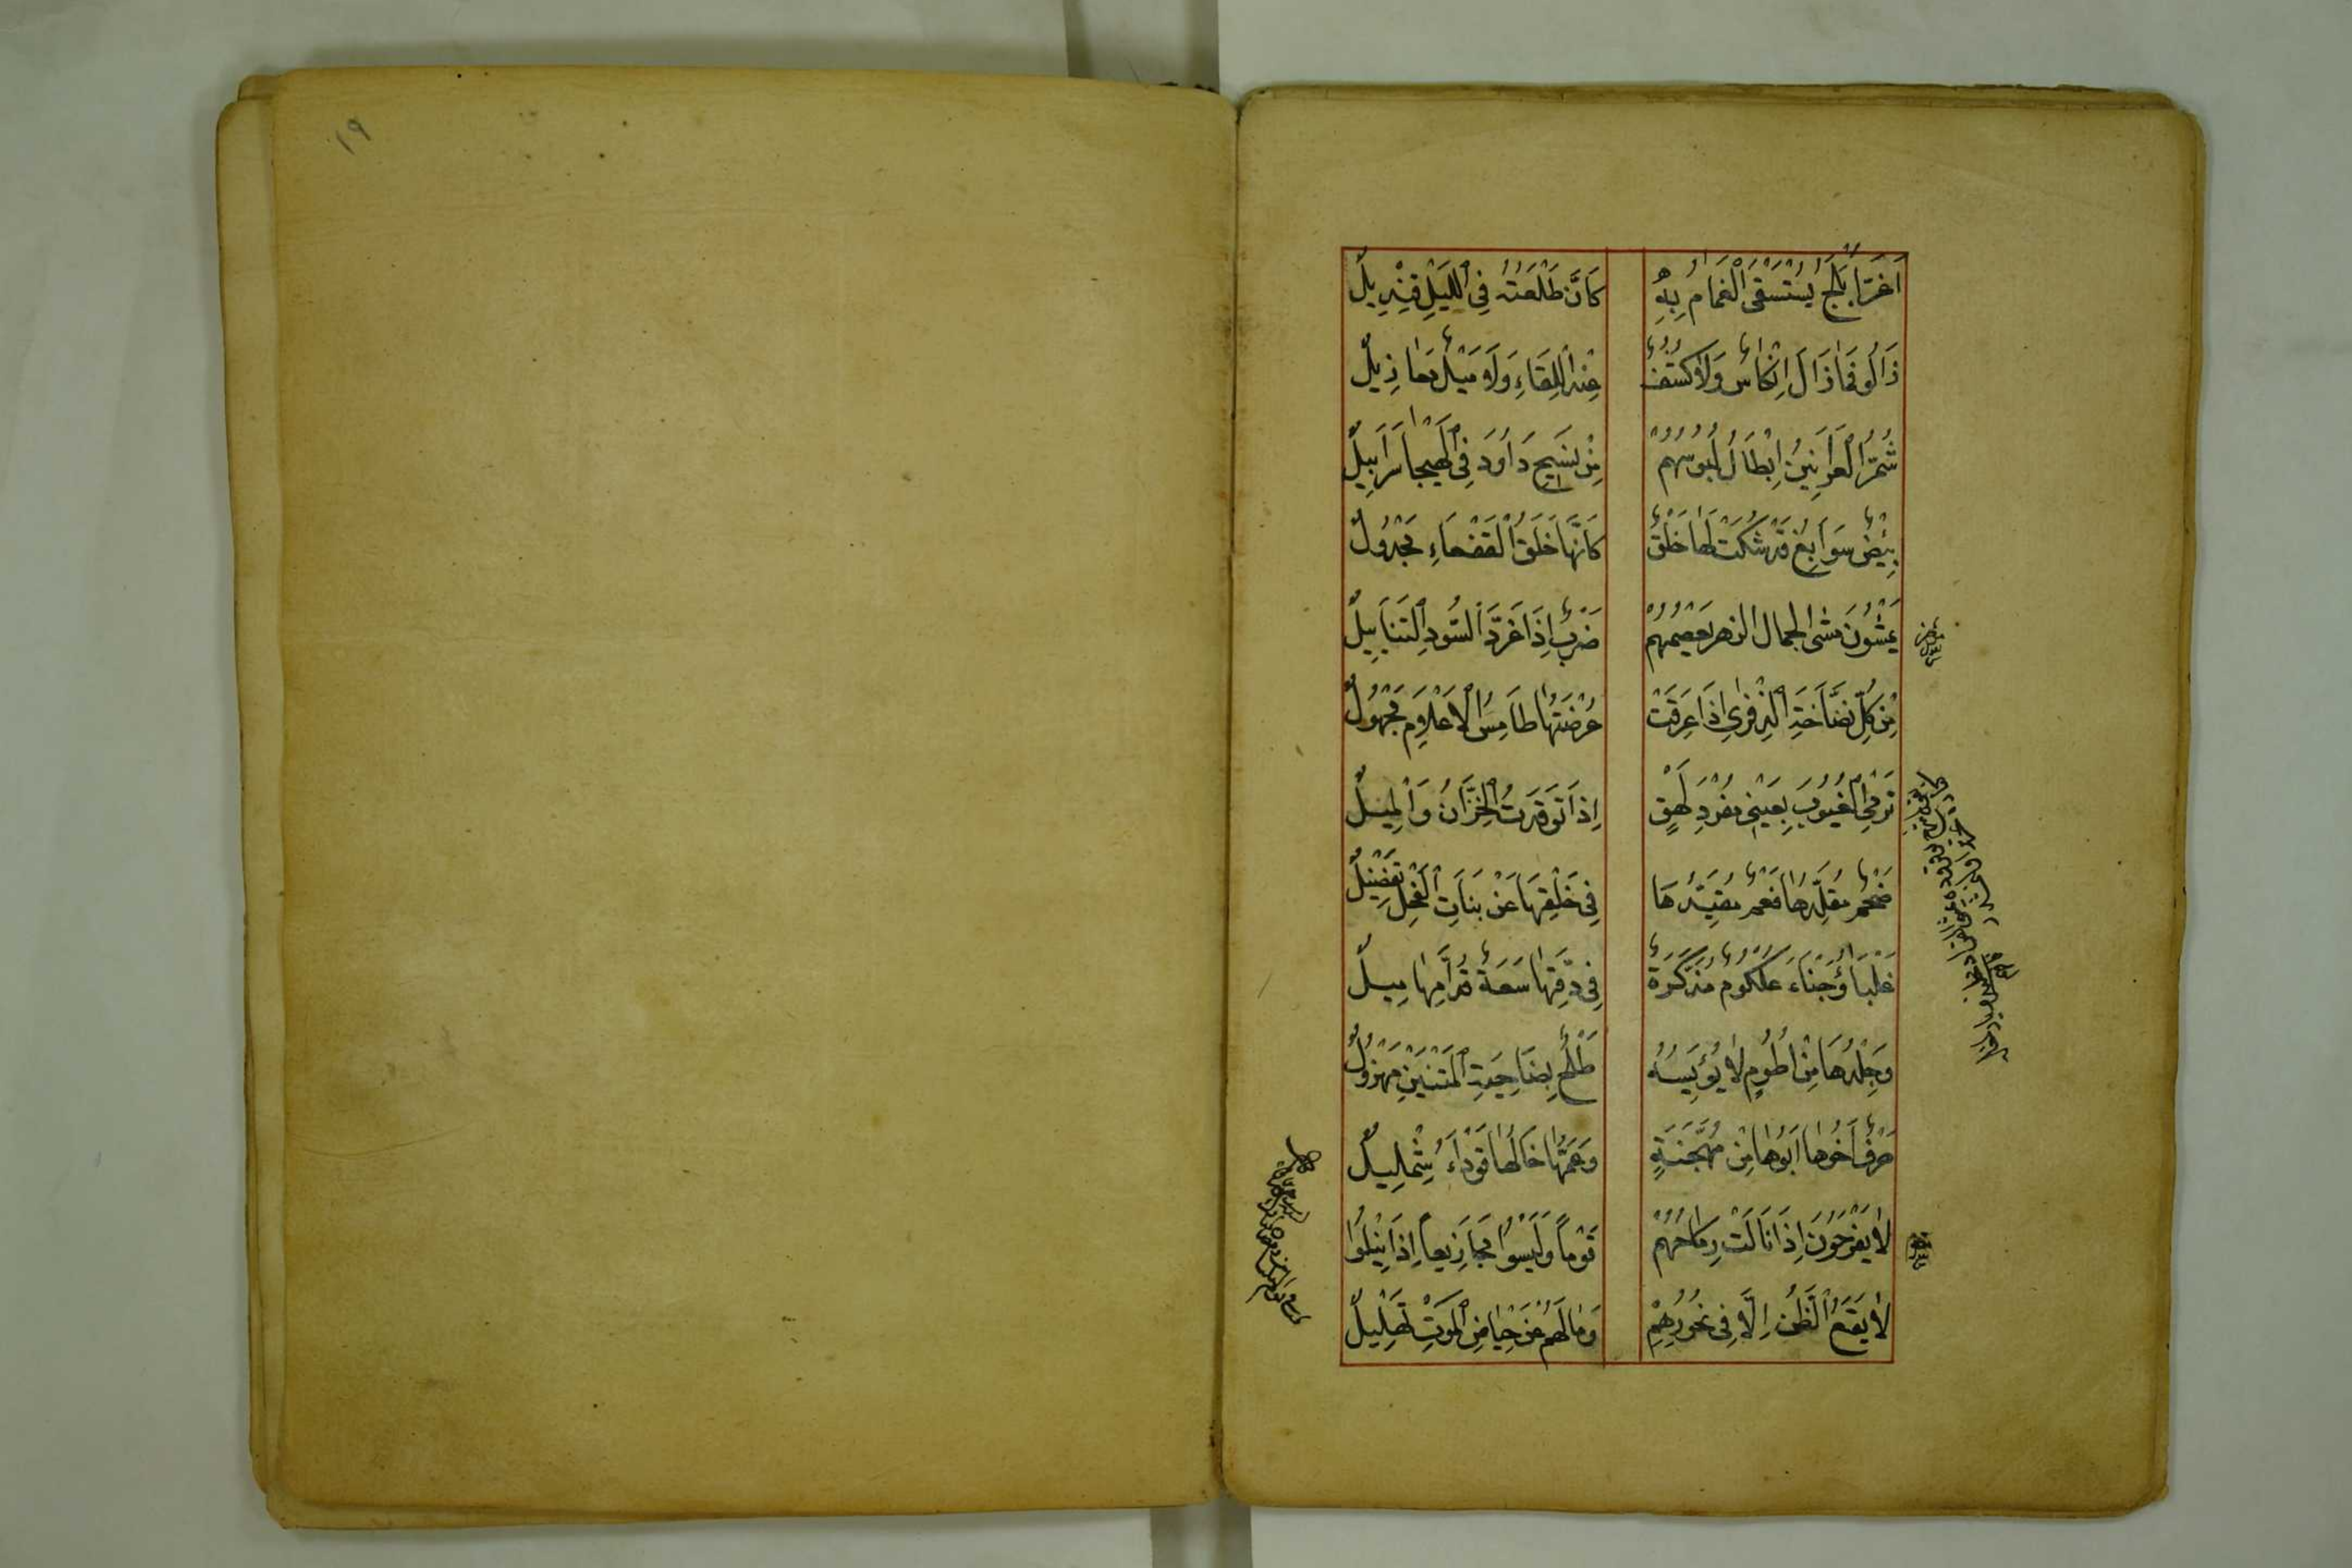 ١٩
اَغَرُّ اَبْلَجُ يُسْتَسْقَى الْغَمَامُ بِهِ كَاَنَّ طَلْعَتَهُ فِى اللَّيْلِ قِنْدِيلُ
زَالُوا فَمَا زَالَ اَنْكَاسٌ وَلَا كُشُفٌ عِنْدَ اللِّقَاءِ وَلَا مِيْلٌ مَعَازِيلُ
شُمُّ الْعَرَانِينِ اَبْطَالٌ لَبُوسُهُمْ مِنْ نَسْجِ دَاوُدَ فِى الْهَيْجَا سَرَابِيلُ
بِيْضٌ سَوَابِغُ قَدْ شُكَّتْ لَهَا حَلَقٌ كَاَنَّهَا حَلَقُ الْقَفْعَاءِ مَجْدُولُ
يَمْشُونَ مشى الجمال الزهر يعصِمُهُمْ ضَرْبٌ اِذَا غَرَّدَ السُّودُ التَّنَابِيلُ
مِنْ كُلِّ نَضَّاخَةِ الذِّفْرٰى اِذَا عَرِقَتْ عُرْضَتُهَا طَامِسُ الْاَعْلَامِ مَجْهُولُ
تَرْمِى الْغُيُوبَ بِعَيْنَىْ مُفْرَدٍ لَهِقٍ اِذَا تَوَقَّدَتِ الْحِزَّانُ وَالْمِيلُ
ضَخْمٌ مُقَلَّدُهَا فَعْمٌ مُقَيَّدُهَا فِى خَلْقِهَا عَنْ بَنَاتِ الْفَحْلِ تَفْضِيلُ
غَلْبَاءُ وَجْنَاءُ عُلْكُومٌ مُذَكَّرَةٌ فِى دَفِّهَا سَعَةٌ قُدَّامُهَا مِيلُ
وَجِلْدُهَا مِنْ اَطُومٍ لَا يُؤَيِّسُهُ طَلْحٌ بِضَاحِيَةِ الْمَتْنَيْنِ مَهْزُولُ
حَرْفٌ اَخُوهَا اَبُوهَا مِنْ مُهَجَّنَةٍ وَعَمُّهَا خَالُهَا قَوْدَاءُ شِمْلِيلُ
لَا يَفْرَحُونَ اِذَا نَالَتْ رِمَاحُهُمُ قَوْمًا وَلَيْسُوا مَجَازِيعًا اِذَا نِيْلُوا
لَا يَقَعُ الطَّعْنُ اِلَّا فِى نُحُورِهِمْ وَمَا لَهُمْ عَنْ حِيَاضِ الْمَوْتِ تَهْلِيلُ